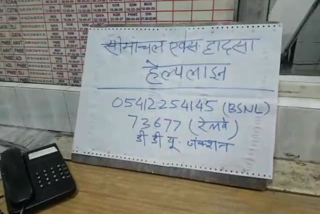 सीमांचल एक्स हादसा
हेल्पलाइन
05412254145 (BSNL)
73677 (रेलवे)
डी डी यू जंक्शन